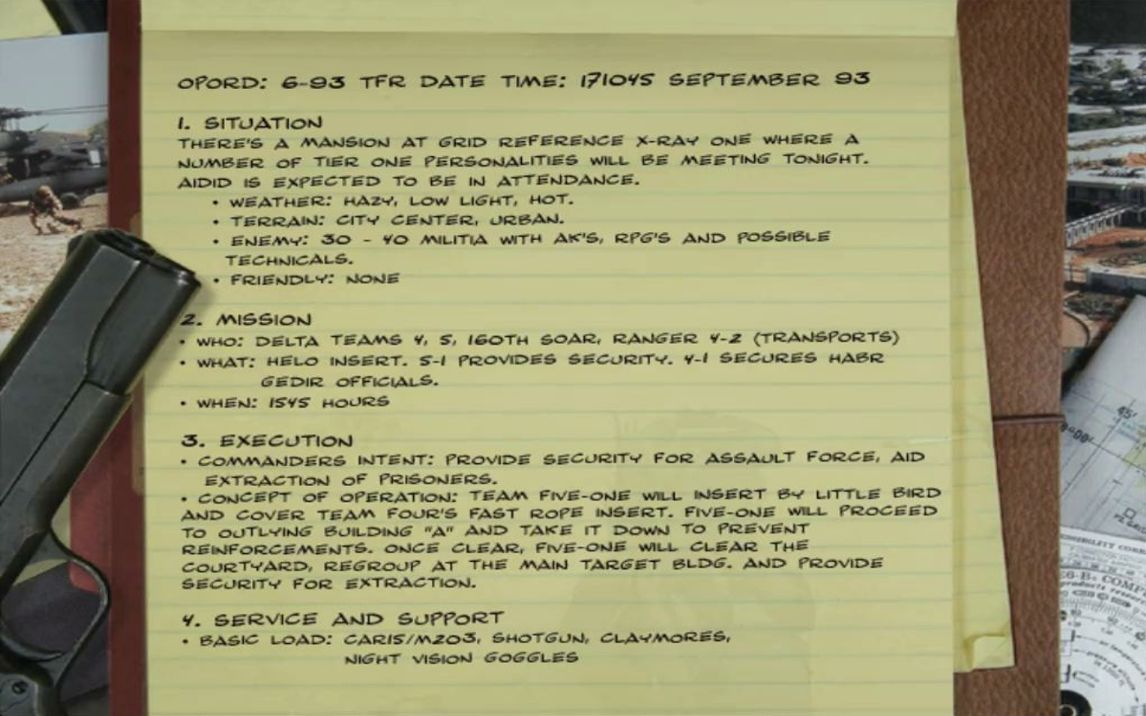 OPORD: 6-93 TFR DATE TIME: 171045 SEPTEMBER 93
1. SITUATION
THERE'S A MANSION AT GRID REFERENCE X-RAY ONE WHERE A
NUMBER OF TIER ONE PERSONALITIES WILL BE MEETING TONIGHT.
AIDID IS EXPECTED TO BE IN ATTENDANCE.
• WEATHER: HAZY, LOW LIGHT, HOT.
• TERRAIN: CITY CENTER, URBAN.
• ENEMY: 30 - 40 MILITIA WITH AK'S, RPG'S AND POSSIBLE
TECHNICALS.
• FRIENDLY: NONE
2. MISSION
• WHO: DELTA TEAMS 4, 5, 160TH SOAR, RANGER 4-2 (TRANSPORTS)
• WHAT: HELO INSERT. 5-1 PROVIDES SECURITY. 4-1 SECURES HABR
GEDIR OFFICIALS.
• WHEN: 1545 HOURS
3. EXECUTION
• COMMANDERS INTENT: PROVIDE SECURITY FOR ASSAULT FORCE, AID
EXTRACTION OF PRISONERS.
• CONCEPT OF OPERATION: TEAM FIVE-ONE WILL INSERT BY LITTLE BIRD
AND COVER TEAM FOUR'S FAST ROPE INSERT. FIVE-ONE WILL PROCEED
TO OUTLYING BUILDING "A" AND TAKE IT DOWN TO PREVENT
REINFORCEMENTS. ONCE CLEAR, FIVE-ONE WILL CLEAR THE
COURTYARD, REGROUP AT THE MAIN TARGET BLDG. AND PROVIDE
SECURITY FOR EXTRACTION.
4. SERVICE AND SUPPORT
• BASIC LOAD: CAR15/M203, SHOTGUN, CLAYMORES,
NIGHT VISION GOGGLES
45'